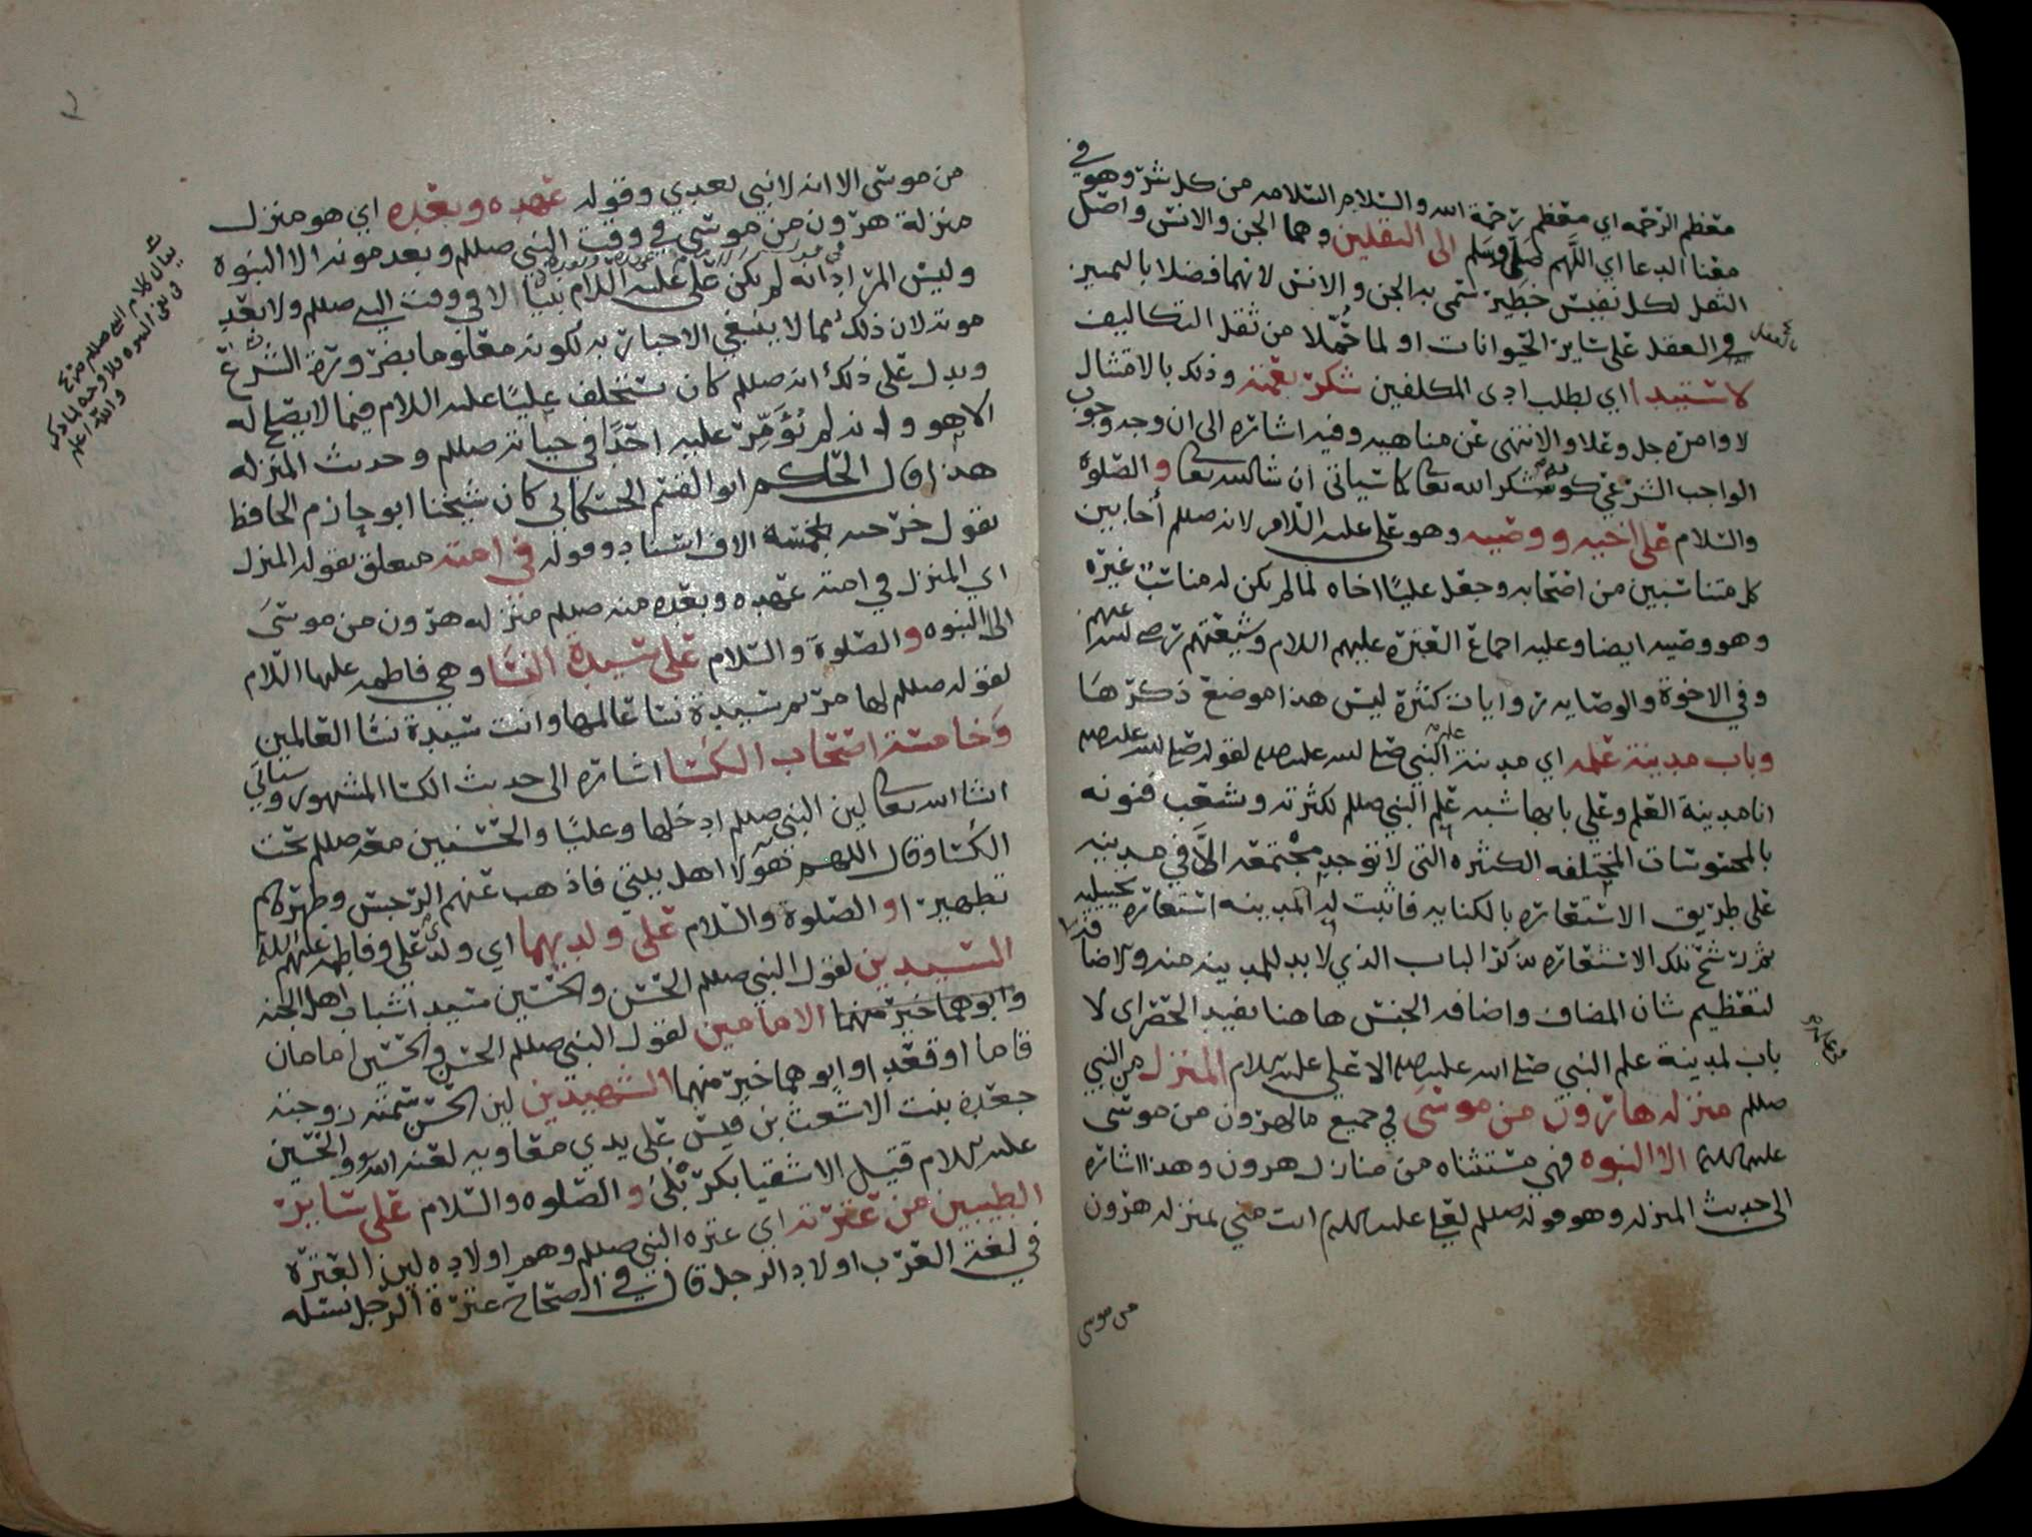 معظم الرحمه اي معظم رحمة الله والسلام السلامه من كل شر وهو في
معنا الدعا اي اللهم صل وسلم الى الثقلين وهما الجن والانس واصل
الثقل لكل نفيس خطير سمى به الجن والانس لانهما فضلا بالتميز
والعقل على ساير الحيوانات او لما حملا من ثقل التكاليف
بالعقل
لاستيدا اي لطلب ادى المكلفين شكر نعمته وذلك بالامتثال
لاوامره جل وعلا والانتهى عن مناهيه وفيه اشاره الى ان وجه وجوب
الواجب الشرعي كونه شكر الله تعا كما سياتي ان شا الله تعا والصلوة
والسلام على اخيه ووصيه وهو علي عليه السلام لانه صللم أخا بين
كل متناسبين من اصحابه وجعل عليا اخاه لما لم يكن له مناسب غيره
وهو وصيه ايضا وعليه اجماع العترة عليهم السلام وشيعتهم رضي الله عنهم
وفي الاخوة والوصايه روايات كثيرة ليس هذا موضع ذكرها
وباب مدينة علمه اي مدينة علم النبي صلى الله عليه وسلم لقوله صلى الله عليه وسلم
انا مدينة العلم وعلي بابها شبه علم النبي صللم لكثرته وشعب فنونه
بالمحسوسات المختلفه الكثيره التي لا توجد مجتمعه الا في مدينه
على طريق الاستعاره بالكنايه فاثبت له المدينه استعاره تخييليه
ثم رشح تلك الاستعاره بذكر الباب الذي لا بد للمدينه منه
لتعظيم شان المضاف واضافه الجنس هاهنا تفيد الحصر اى لا
باب لمدينة علم النبي صلى الله عليه وسلم الا علي عليه السلام المنزل من النبي
صللم منزله هارون من موسى في جميع ما لهرون من موسى
عليهما السلام الا النبوه فهي مستثناه من منازل هرون وهذا اشاره
الى حديث المنزله وهو قوله صللم لعلي عليه السلام انت مني بمنزله هرون
من موسى
من موسى الا انه لا نبي بعدي وقوله عهده وبعده اي هو منزل
منزلة هرون من موسى في وقت النبي صللم وبعد موته الا النبوه
وليس المراد انه لم يكن علي عليه السلام نبيا الا في وقت النبي صللم ولا بعد
موته لان ذلك مما لا ينبغي الاخبار به لكونه معلوما بضرورة الشرع
ويدل على ذلك انه صللم كان يستخلف عليا عليه السلام فيما لا يصلح له
الا هو وانه لم يؤمر عليه احدا في حياته صللم وحديث المنزله
هذا قال الحاكم ابو القسم الحسكاني كان شيخنا ابو حازم الحافظ
يقول خرجته بخمسة الاف اسناد وقوله في امته متعلق بقوله المنزل
اي المنزل في امته عهده وبعده منه صللم منزله هرون من موسى
الا النبوه والصلوة والسلام على سيدة النسا وهي فاطمه عليها السلام
لقوله صللم لها مريم سيدة نسا عالمها وانت سيدة نسا العالمين
وخامسة اصحاب الكسا اشاره الى حديث الكسا المشهور وسياتي
انشا الله تعا لان النبي صللم ادخلها وعليا والحسنين معه صللم تحت
الكسا وقال اللهم هؤلا اهل بيتي فاذهب عنهم الرجس وطهرهم
تطهيرا والصلوة والسلام على ولديهما اي ولدي علي وفاطمه عليهم السلام
السيدين لقول النبي صللم الحسن والحسين سيدا شباب اهل الجنه
وابوهما خير منهما الامامين لقول النبي صللم الحسن والحسين امامان
قاما او قعدا وابوهما خير منهما الشهيدين لين الحسن سمته زوجته
جعدة بنت الاشعث بن قيس على يدي معاويه لعنه الله والحسين
عليه السلام قتيل الاشقيا بكربلى والصلوه والسلام على ساير
الطيبين من عترته اي عترة النبي صللم وهم اولاده لين العترة
في لغة العرب اولاد الرجل قال في الصحاح عترة الرجل نسله
يقال كلام النبي صللم صريح
في نفي النبوه ولا وجه لما ذكر
والله اعلم